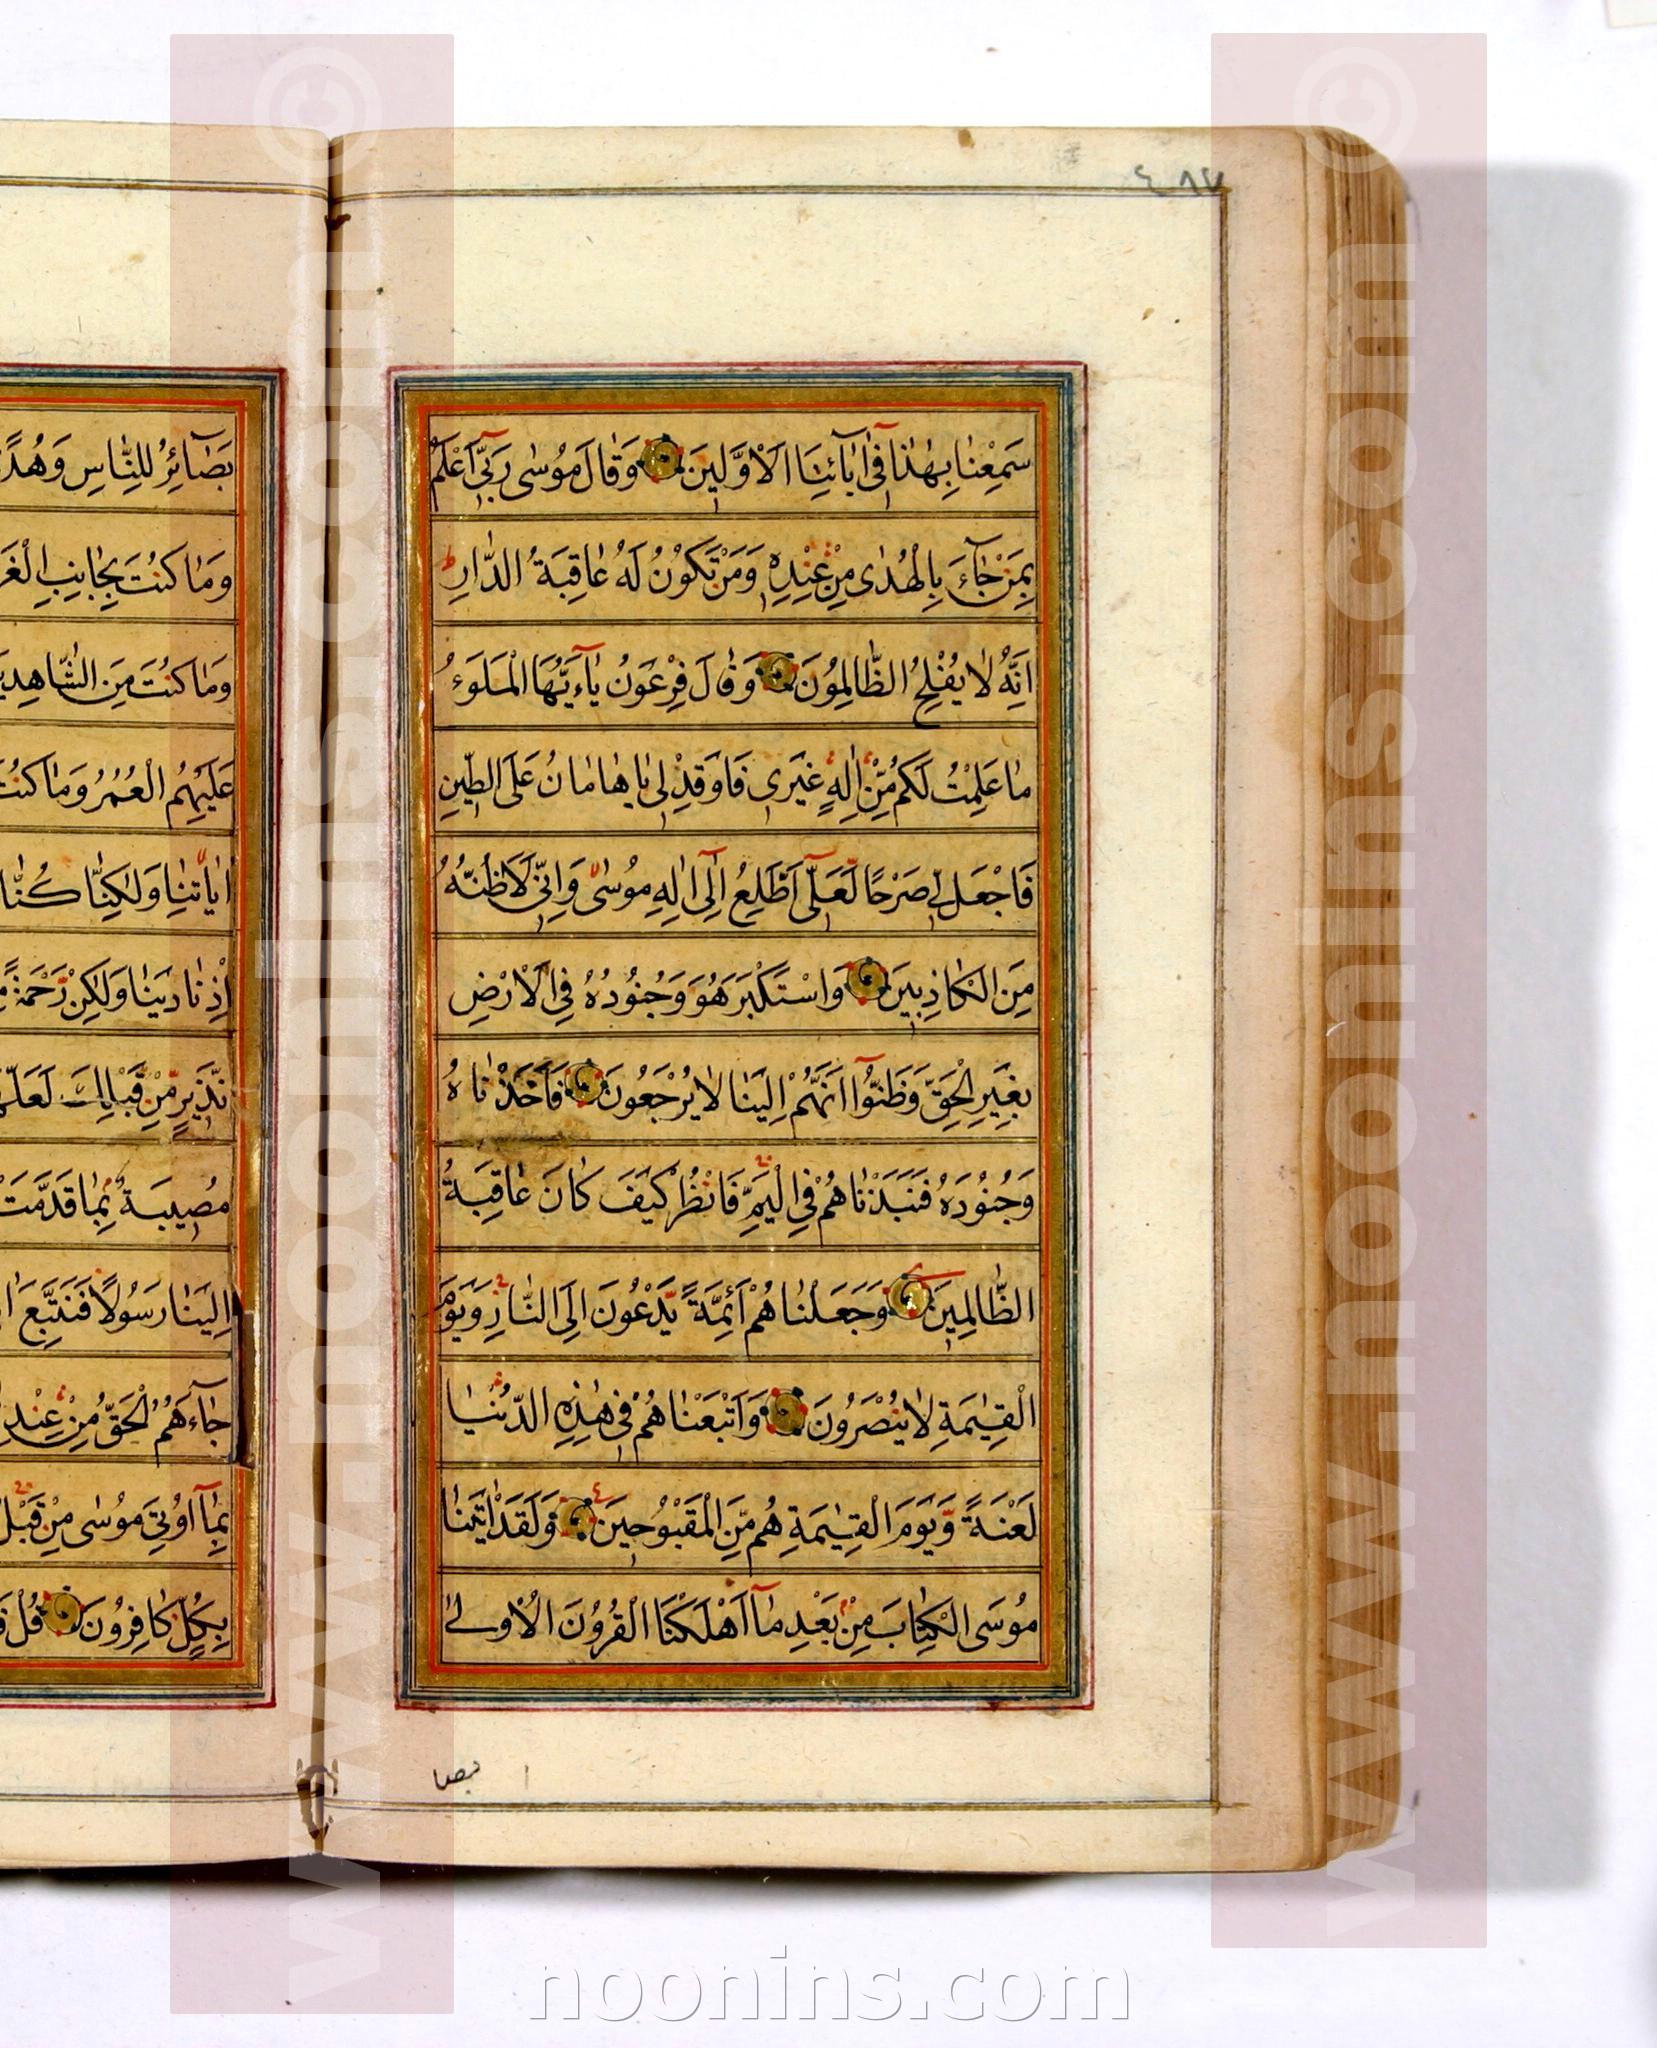 ٤٨٧
سَمِعْنَا بِهٰذَا فِىٓ اٰبَآئِنَا الْاَوَّلِينَ وَقَالَ مُوسٰى رَبِّىٓ اَعْلَمُ
بِمَنْ جَآءَ بِالْهُدٰى مِنْ عِنْدِهٖ وَمَنْ تَكُونُ لَهُ عَاقِبَةُ الدَّارِ ط
اِنَّهُ لَا يُفْلِحُ الظَّالِمُونَ وَقَالَ فِرْعَوْنُ يَآءَيُّهَا الْمَلَؤُ
مَا عَلِمْتُ لَكُمْ مِّنْ اِلٰهٍ غَيْرِى فَاَوْقِدْ لِى يَا هَامَانُ عَلَى الطِّينِ
فَاجْعَلْ لِى صَرْحًا لَّعَلِّىٓ اَطَّلِعُ اِلٰٓى اِلٰهِ مُوسٰى وَاِنِّى لَاَظُنُّهُ
مِنَ الْكَاذِبِينَ وَاسْتَكْبَرَ هُوَ وَجُنُودُهُ فِى الْاَرْضِ
بِغَيْرِ الْحَقِّ وَظَنُّوٓا اَنَّهُمْ اِلَيْنَا لَا يُرْجَعُونَ فَاَخَذْنَاهُ
وَجُنُودَهُ فَنَبَذْنَاهُمْ فِى الْيَمِّ فَانْظُرْ كَيْفَ كَانَ عَاقِبَةُ
الظَّالِمِينَ وَجَعَلْنَاهُمْ اَئِمَّةً يَّدْعُونَ اِلَى النَّارِ وَيَوْمَ
الْقِيٰمَةِ لَا يُنْصَرُونَ وَاَتْبَعْنَاهُمْ فِى هٰذِهِ الدُّنْيَا
لَعْنَةً وَّيَوْمَ الْقِيٰمَةِ هُمْ مِّنَ الْمَقْبُوحِينَ وَلَقَدْ اٰتَيْنَا
مُوسَى الْكِتَابَ مِنْ بَعْدِ مَآ اَهْلَكْنَا الْقُرُونَ الْاُولٰى
بصا
بَصَآئِرَ لِلنَّاسِ وَهُدًى
وَمَا كُنْتَ بِجَانِبِ
وَمَا كُنْتَ مِنَ الشَّاهِدِينَ
عَلَيْهِمُ الْعُمُرُ وَمَا كُنْتَ
اٰيَاتِنَا وَلٰكِنَّا كُنَّا
اِذْ نَادَيْنَا وَلٰكِنْ رَّحْمَةً
نَّذِيرٍ مِّنْ قَبْلِكَ
مُصِيبَةٌ بِمَا قَدَّمَتْ
اِلَيْنَا رَسُولًا فَنَتَّبِعَ
جَآءَهُمُ الْحَقُّ مِنْ عِنْدِ
بِمَآ اُوتِىَ مُوسٰى مِنْ قَبْلُ
بِكُلٍّ كَافِرُونَ قُلْ
www.noonins.com ©
www.noonins.com ©
noonins.com